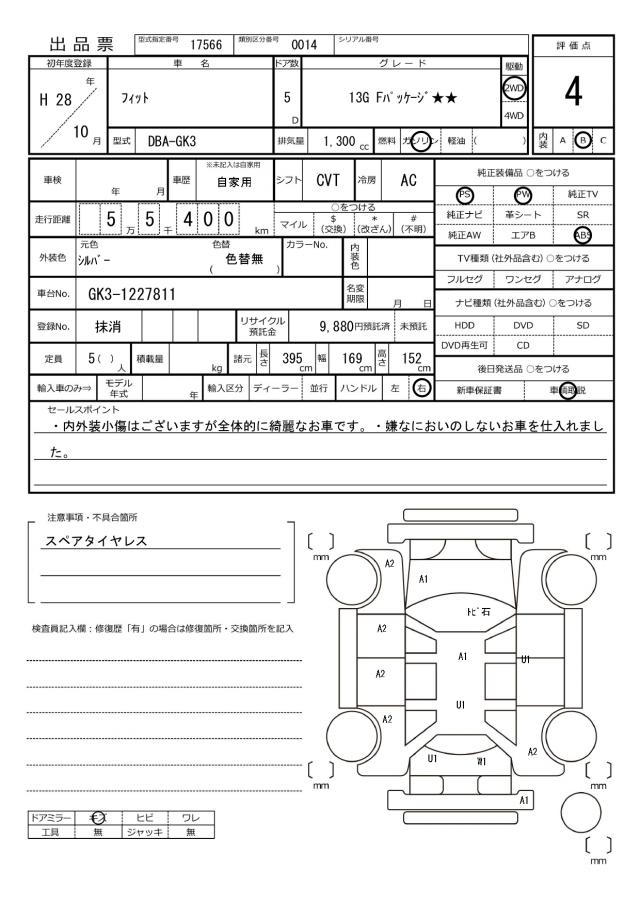 出品票 型式指定番号 17566 類別区分番号 0014 シリアル番号
評価点
4
内装 A B C
初年度登録 車名 ドア数 グレード 駆動
H 28 年 10 月
フィット 5 D 13G Fパッケージ★★ 2WD 4WD
型式 DBA-GK3 排気量 1,300 cc 燃料 ガソリン 軽油 ( )
車検 年 月 車歴 ※未記入は自家用 自家用 シフト CVT 冷房 AC
走行距離 5 万 5 千 4 0 0 km
○をつける
マイル $(交換) *(改ざん) #(不明)
外装色 元色 シルバー 色替 ( 色替無 ) カラーNo. 内装色
車台No. GK3-1227811 名変期限 月 日
登録No. 抹消 リサイクル預託金 9,880円預託済 未預託
定員 5( ) 人 積載量 kg 諸元 長さ 395 cm 幅 169 cm 高さ 152 cm
輸入車のみ⇒ モデル年式 年 輸入区分 ディーラー 並行 ハンドル 左 右
純正装備品 ○をつける
PS PW 純正TV
純正ナビ 革シート SR
純正AW エアB ABS
TV種類(社外品含む)○をつける
フルセグ ワンセグ アナログ
ナビ種類(社外品含む)○をつける
HDD DVD SD
DVD再生可 CD
後日発送品 ○をつける
新車保証書 車輌取説
セールスポイント
・内外装小傷はございますが全体的に綺麗なお車です。・嫌なにおいのしないお車を仕入れまし
た。
注意事項・不具合箇所
スペアタイヤレス
検査員記入欄:修復歴「有」の場合は修復箇所・交換箇所を記入
ドアミラー キズ ヒビ ワレ
工具 無 ジャッキ 無
〔 〕 mm
〔 〕 mm
A2
A1
トビ石
A2
A1
U1
A2
U1
A2
U1
W1
A2
〔 〕 mm
〔 〕 mm
A1
〔 〕 mm